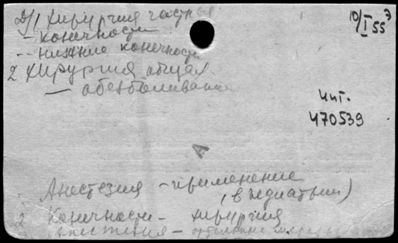 2/1 Хирургия частная
- конечности
- нижние конечности
2 Хирургия общая
- обезболивание
10/I 55
чит.
470539
А
Анестезия - применение
(в педиатрии)
2 Конечности - хирургия